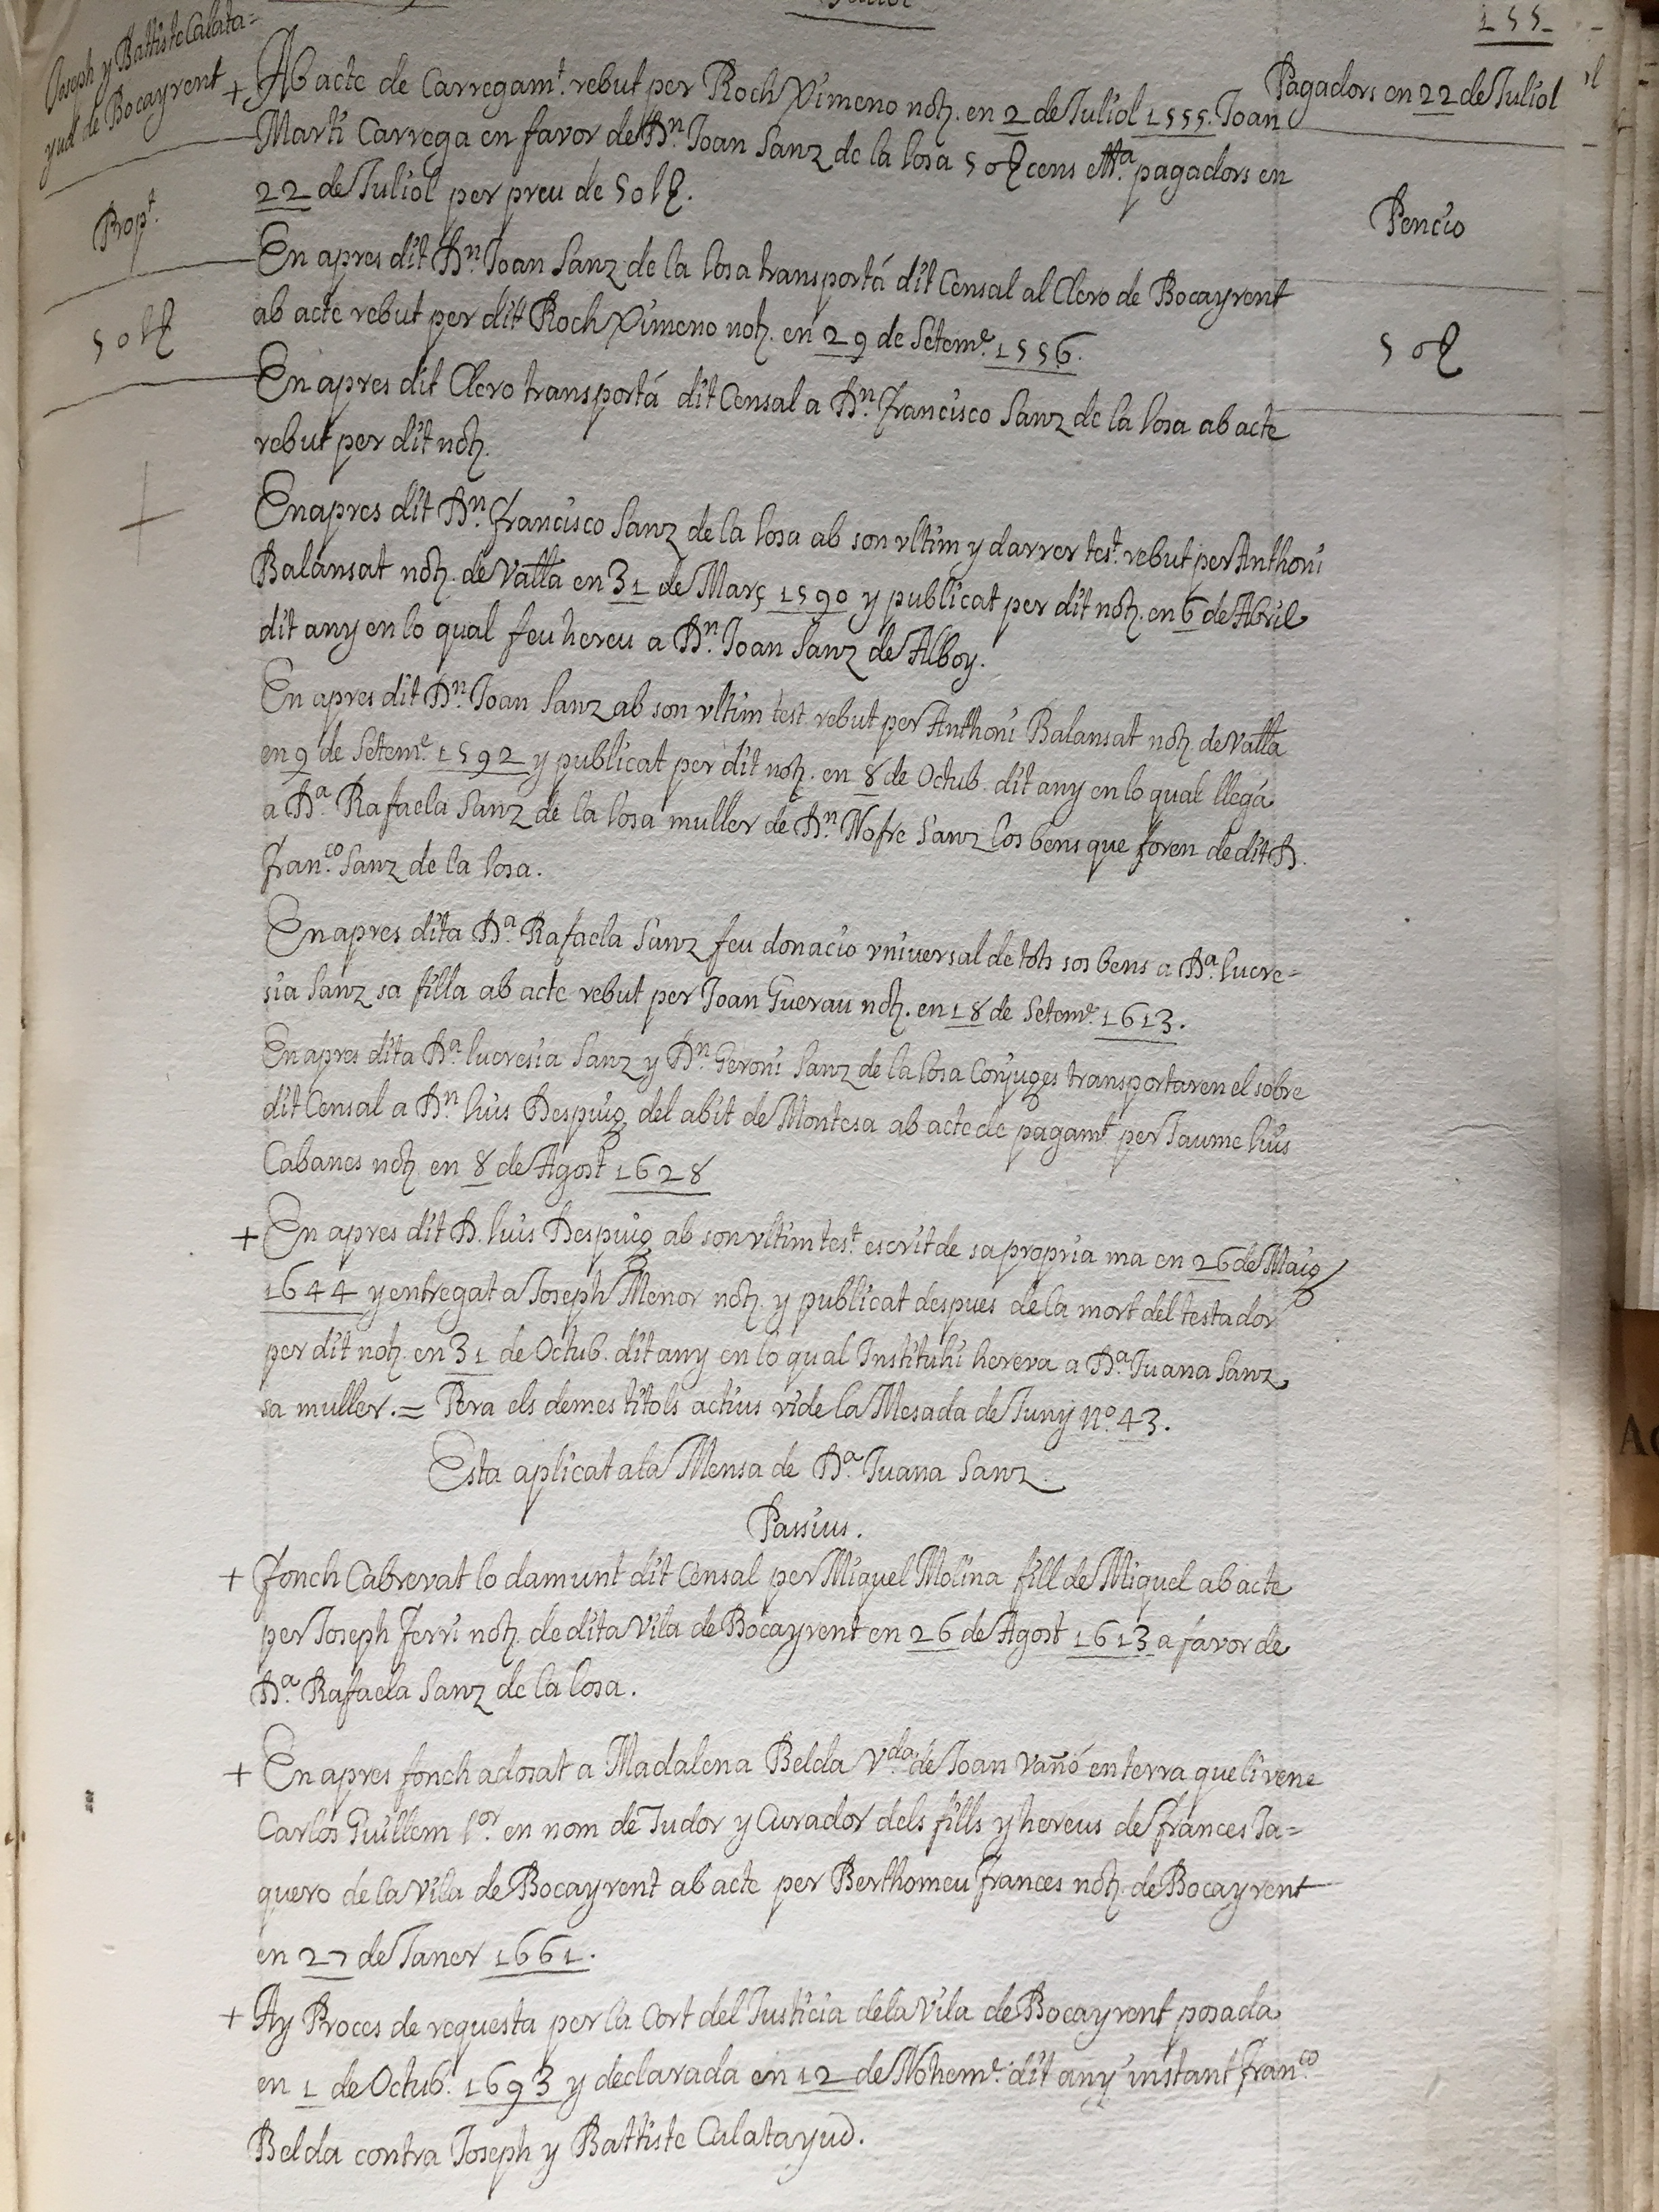 Juliol
155
Joseph y Battiste Calata=
yud de Bocayrent
Prop.t
50 ll
+ Ab acte de Carregam.t rebut per Roch Ximeno not. en 2 de Juliol 1555. Joan
Marti Carrega en favor de Dn. Joan Sanz de la losa 50 s cens pagadors en
22 de Juliol per preu de 50 ll.
Pagadors en 22 de Juliol
Pencio
50 s
En apres dit Dn. Joan Sanz de la losa transportá dit Censal al Clero de Bocayrent
ab acte rebut per dit Roch Ximeno not. en 29 de Setem.e 1556.
En apres dit Clero transportá dit Censal a Dn. Francisco Sanz de la losa ab acte
rebut per dit not.
En apres dit Dn. Francisco Sanz de la losa ab son vltim y darrer test. rebut per Anthoni
Balansat not. de Valla en 31 de Març 1590 y publicat per dit not. en 6 de Abril
dit any en lo qual feu hereu a Dn. Joan Sanz de Alboy.
En apres dit Dn. Joan Sanz ab son vltim test. rebut per Anthoni Balansat not. de Valla
en 9 de Setem.e 1592 y publicat per dit not. en 8 de Octub. dit any en lo qual llegá
a Da. Rafaela Sanz de la losa muller de Dn. Nofre Sanz los bens que foren de dit D.
Fran.co Sanz de la losa.
En apres dita Da. Rafaela Sanz feu donacio vniversal de tots sos bens a Da. lucre=
sia Sanz sa filla ab acte rebut per Joan Guerau not. en 18 de Setem.e 1613.
En apres dita Da. lucresia Sanz y Dn. Geroni Sanz de la losa Conjuges transportaren el sobre
dit Censal a Dn. luis Despuig del abit de Montesa ab acte de pagam.t per Jaume luis
Cabanes not. en 8 de Agost 1628
+ En apres dit D. luis Despuig ab son vltim tes.t escrit de sa propria ma en 26 de Maig
1644 y entregat a Joseph Menor not. y publicat despues de la mort del testador
per dit not. en 31 de Octub. dit any en lo qual Instituhi hereva a Da. Juana Sanz
sa muller. = Pera els demes titols actius vide la Mesada de Juny No. 43.
Esta aplicat a la Mensa de Da. Juana Sanz.
Passius.
+ Fonch Cabrevat lo damunt dit Censal per Miquel Molina fill de Miquel ab acte
per Joseph Ferri not. de dita Vila de Bocayrent en 26 de Agost 1613 a favor de
Da. Rafaela Sanz de la losa.
+ En apres fonch adosat a Madalena Belda V.da de Joan Vañó en terra que li vene
Carlos Guillem l.or en nom de Tudor y Curador dels fills y hereus de Frances Ja=
quero de la Vila de Bocayrent ab acte per Berthomeu Frances not. de Bocayrent
en 27 de Janer 1661.
+ Ay Proces de requesta per la Cort del Justicia de la Vila de Bocayrent posada
en 1 de Octub. 1693 y declarada en 12 de Nohem.e dit any instant Fran.co
Belda contra Joseph y Battiste Calatayud.